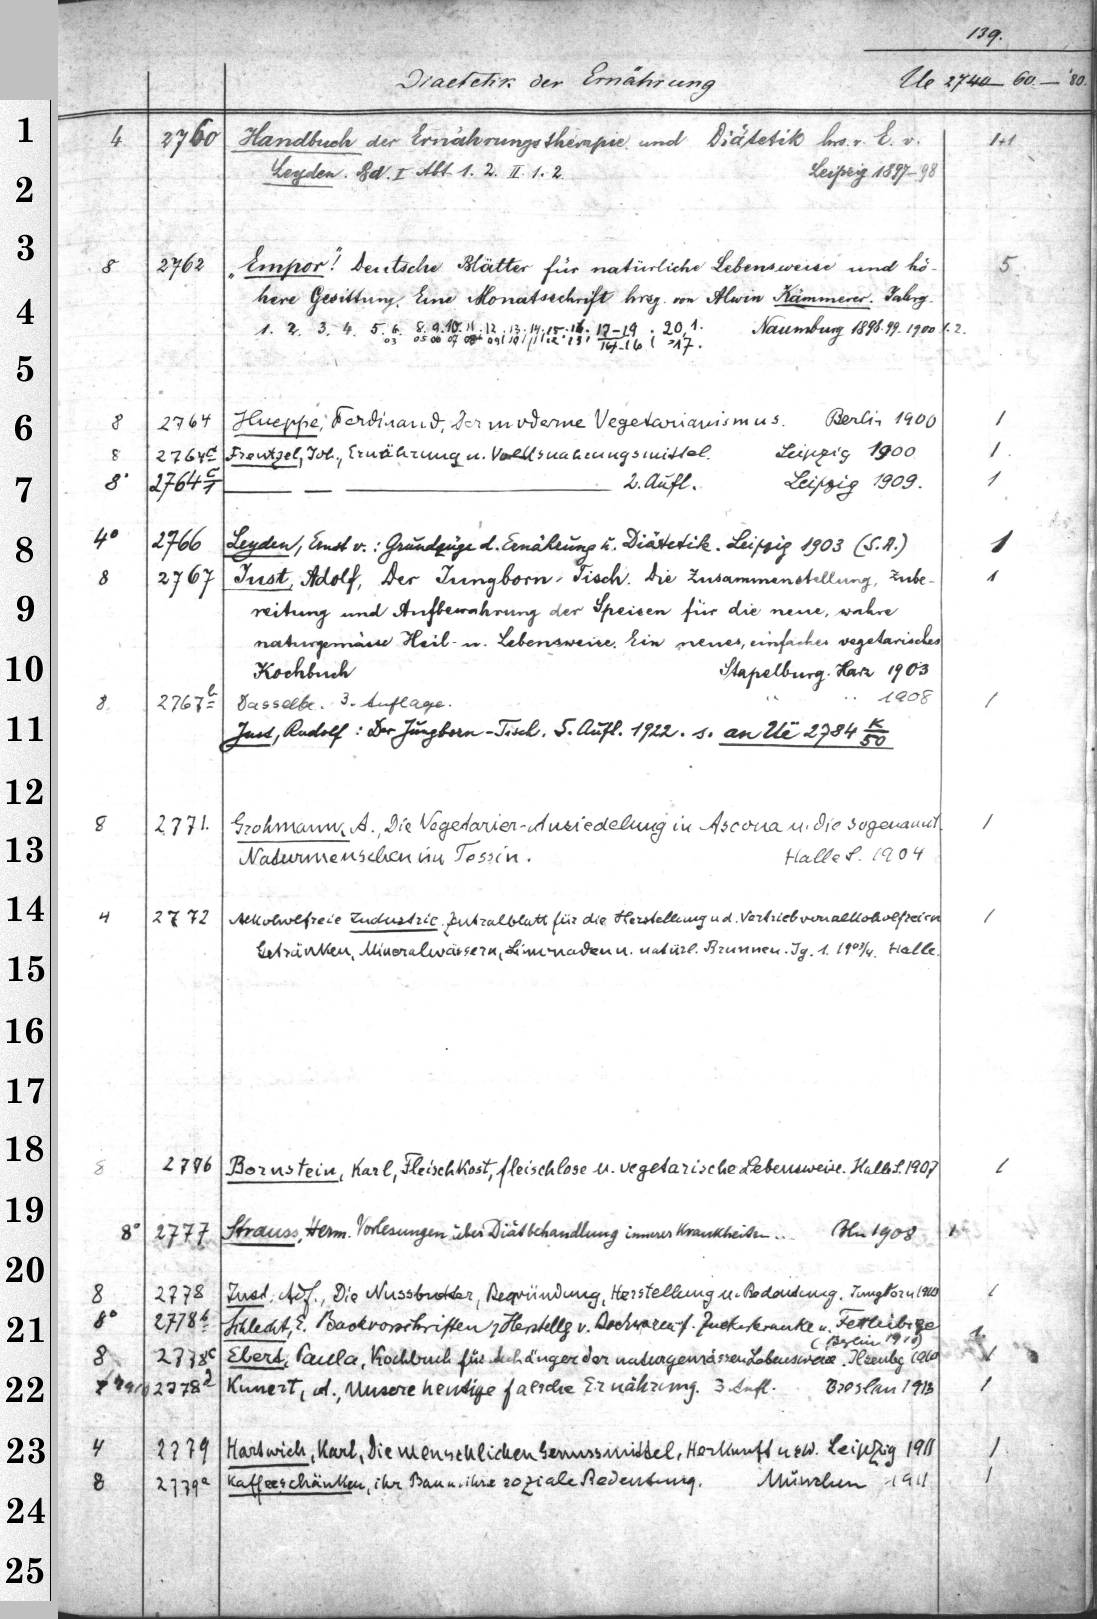 139.
Diaetetik der Ernährung Ue 2740 — 60 — '80.
1
4 2760 Handbuch der Ernährungstherapie und Diätetik hrs. v. E. v. 1+1
Leyden. Bd. I Abt. 1. 2. II. 1. 2. Leipzig 1897-98
2
3
8 2762 „Empor"! Deutsche Blätter für natürliche Lebensweise und hö- 5
here Gesittung. Eine Monatsschrift hrsg. von Alwin Kämmerer. Jahrg.
4
1. 2. 3. 4. 5. 6. 8. 9. 10. 11. 12. 13. 14. 15. 16. 17-19. 20, 1. Naumburg 1898. 99. 1900 1. 2.
03 05 06 07 08 09 10 11 12 13 14-16 17.
5
6
8 2764 Hueppe, Ferdinand, Der moderne Vegetarianismus. Berlin 1900 1
8 2764c Frentzel, Joh., Ernährung u. Volksnahrungsmittel. Leipzig 1900 1
7
8° 2764 c/1 — — — 2. Aufl. Leipzig 1909. 1
8
4° 2766 Leyden, Ernst v.: Grundzüge d. Ernährung u. Diätetik. Leipzig 1903 (S.A.) 1
8 2767 Just, Adolf, Der Jungborn-Tisch. Die Zusammenstellung, Zube- 1
9
reitung und Aufbewahrung der Speisen für die neue, wahre
naturgemässe Heil- u. Lebensweise. Ein neues, einfaches vegetarisches
10
Kochbuch Stapelburg. Harz 1903
8 2767b Dasselbe. 3. Auflage. " " 1908 1
11
Just, Rudolf: Der Jungborn-Tisch. 5. Aufl. 1922. s. an Ue 2784 K/50
12
8 2771. Grohmann, A., Die Vegetarier-Ansiedelung in Ascona u. die sogenannt. 1
13
Naturmenschen im Tessin. Halle S. 1904
14
4 2772 Alkoholfreie Industrie. Zentralblatt für die Herstellung u. d. Vertrieb von alkoholfreien 1
Getränken, Mineralwässern, Limonaden u. natürl. Brunnen. Jg. 1. 1903/4. Halle.
15
16
17
18
8 2776 Bornstein, Karl, Fleischkost, fleischlose u. vegetarische Lebensweise. Halle S. 1907 1
19
8° 2777 Strauss, Herm. Vorlesungen über Diätbehandlung innerer Krankheiten... Bln 1908 1
20
8 2778 Just, Adf., Die Nussbutter, Begründung, Herstellung u. Bedeutung. Jungborn 1 1
21
8° 2778b Schlecht, E. Backvorschriften z. Herstellg v. Backwaren f. Zuckerkranke u. Fettleibige 1
(Berlin 1910)
8 2778c Ebert, Paula, Kochbuch für Anhänger der naturgemässen Lebensweise. Ilsenbg 1910 1
22
2778d Kunert, A., Unsere heutige falsche Ernährung. 3. Aufl. Breslau 1913 1
23
4 2779 Hartwich, Karl, Die menschlichen Genussmittel, Herkunft usw. Leipzig 1911 1
8 2779a Kaffeeschänken, ihr Bau u. ihre soziale Bedeutung. München 1911 1
24
25